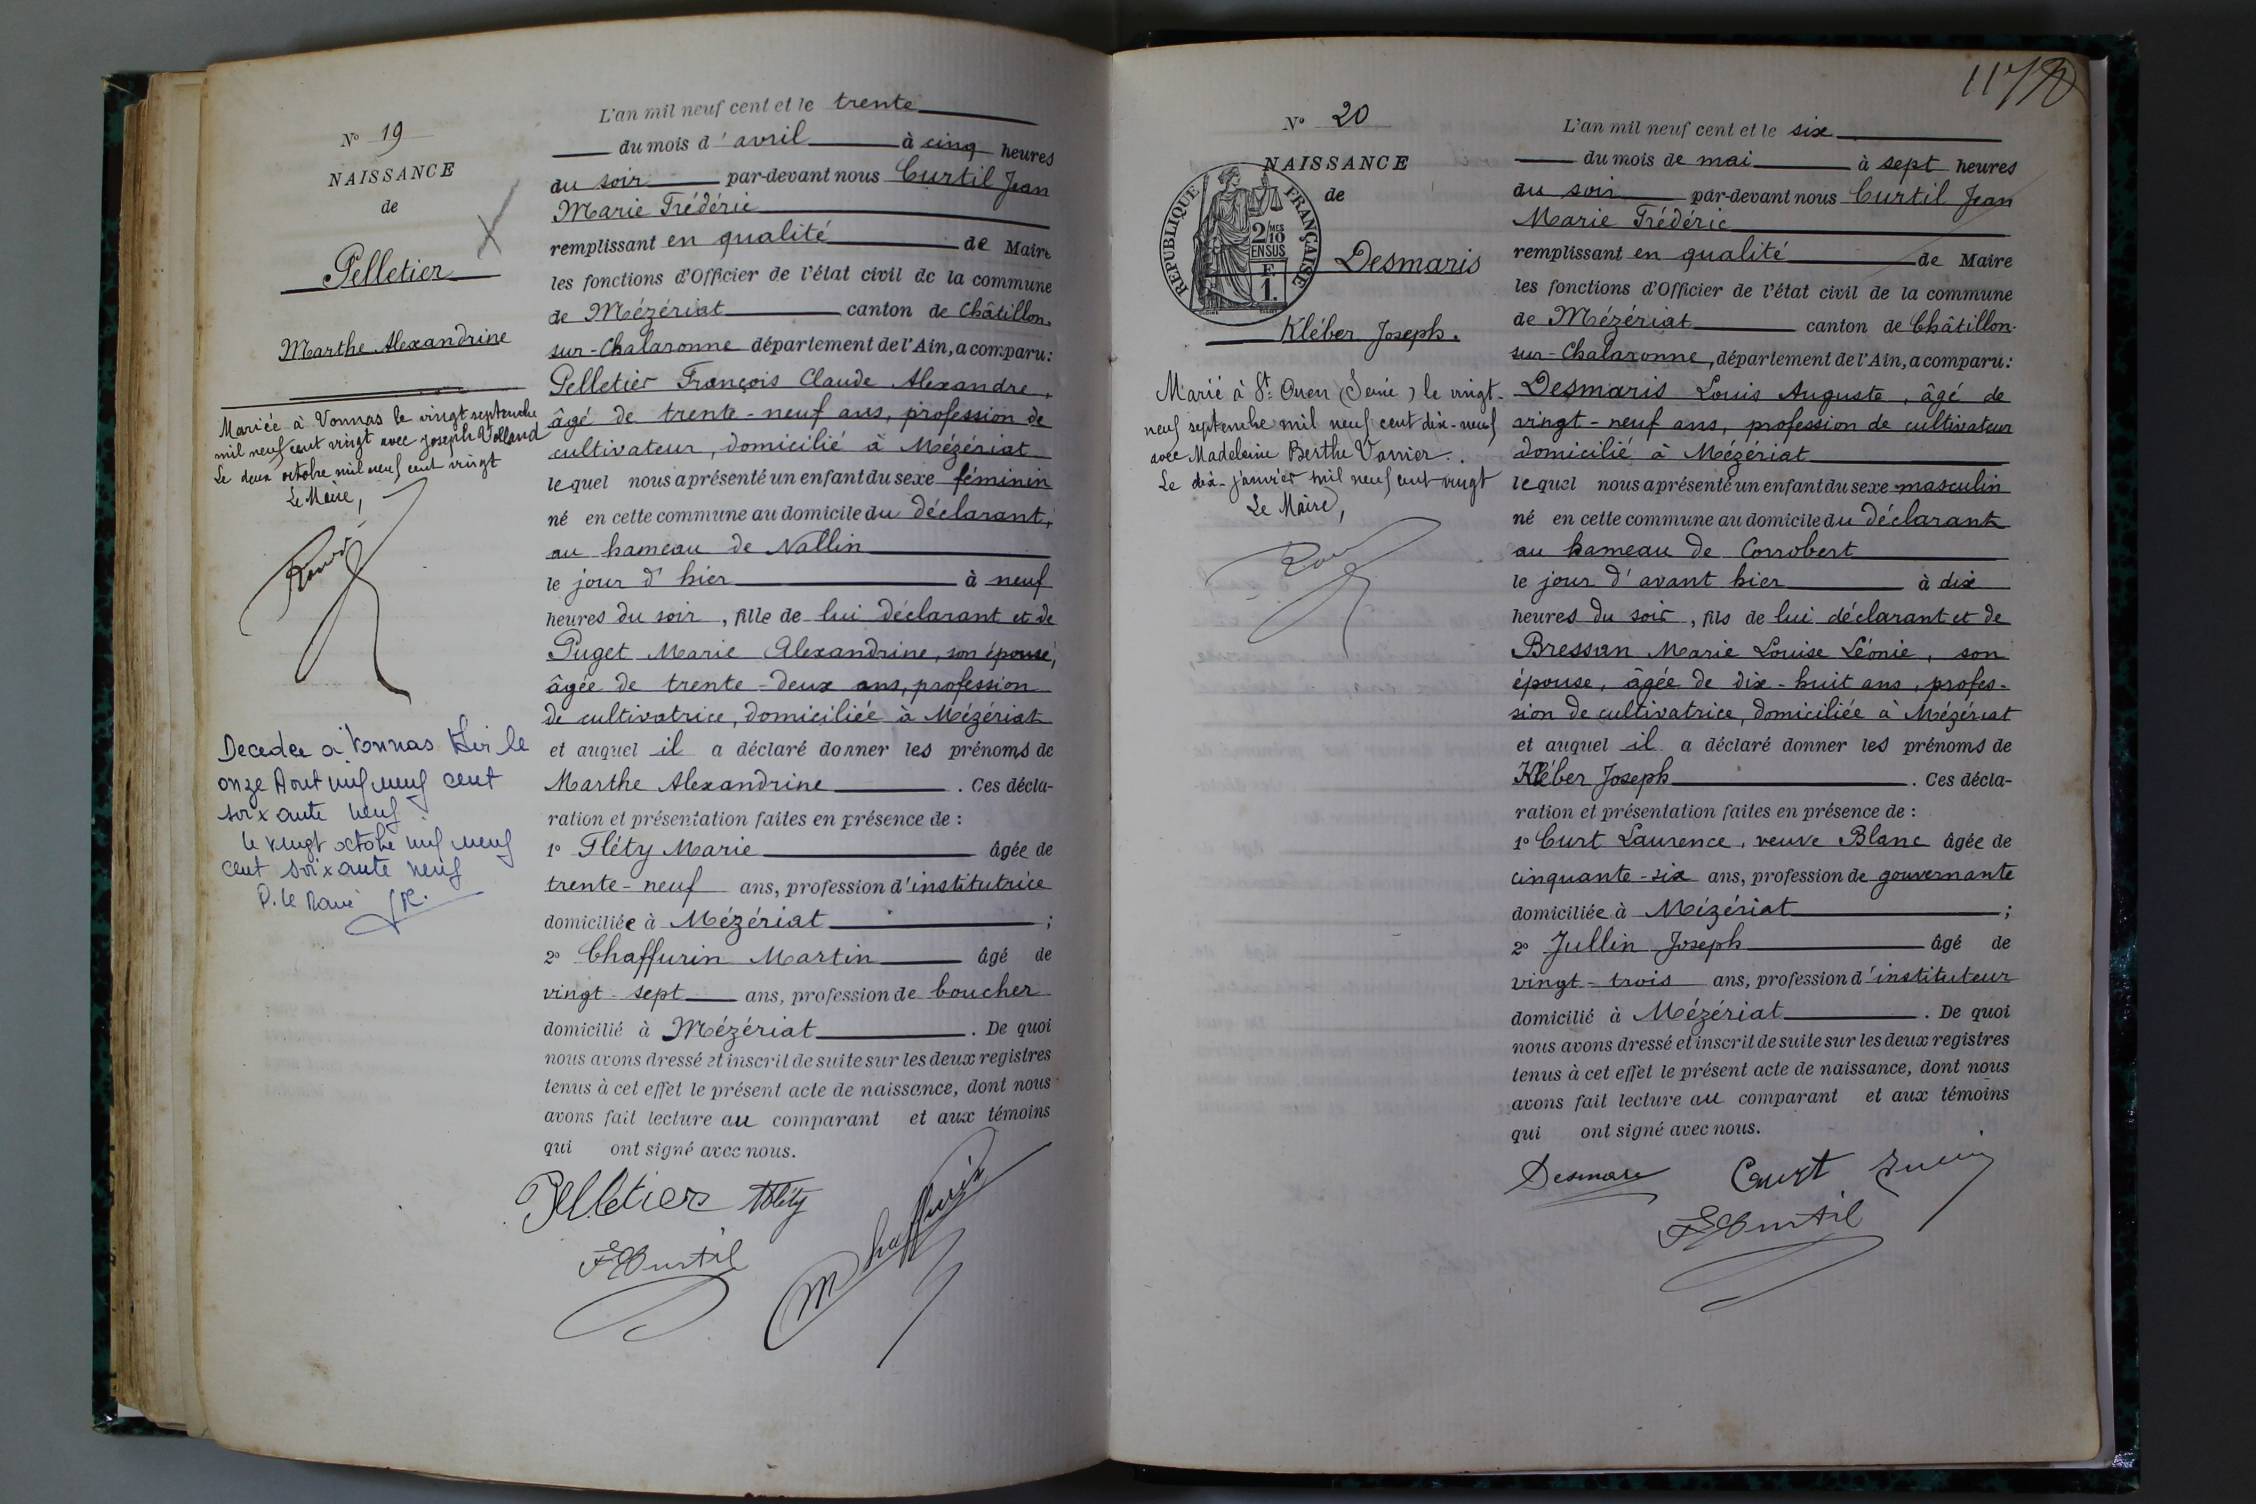 N° 19
NAISSANCE
de
Pelletier
Marthe Alexandrine
Mariée à Vonnas le vingt septembre
mil neuf cent vingt avec Joseph Volland
Le deux octobre mil neuf cent vingt
Le Maire,
Decedee à Vonnas le
onze Aout mil neuf cent
soixante neuf
le vingt octobre mil neuf
cent soixante neuf
P. le Maire
L'an mil neuf cent et le trente
du mois d'avril à cinq heures
du soir par-devant nous Curtil Jean
Marie Frédéric
remplissant en qualité de Maire
les fonctions d'Officier de l'état civil de la commune
de Mézériat canton de Châtillon-
sur-Chalaronne département de l'Ain, a comparu:
Pelletier François Claude Alexandre,
âgé de trente-neuf ans, profession de
cultivateur, domicilié à Mézériat
lequel nous a présenté un enfant du sexe féminin
né en cette commune au domicile du déclarant,
au hameau de Nallin
le jour d'hier à neuf
heures du soir, fille de lui déclarant et de
Puget Marie Alexandrine, son épouse,
âgée de trente-deux ans, profession
de cultivatrice, domiciliée à Mézériat
et auquel il a déclaré donner les prénoms de
Marthe Alexandrine. Ces décla-
ration et présentation faites en présence de :
1° Fléty Marie âgée de
trente-neuf ans, profession d'institutrice
domiciliée à Mézériat ;
2° Chaffurin Martin âgé de
vingt-sept ans, profession de boucher
domicilié à Mézériat. De quoi
nous avons dressé et inscrit de suite sur les deux registres
tenus à cet effet le présent acte de naissance, dont nous
avons fait lecture au comparant et aux témoins
qui ont signé avec nous.
Pelletier Fléty
F Curtil M Chaffurin
N° 20
NAISSANCE
de
REPUBLIQUE FRANÇAISE
2/10 MES
EN SUS
F.
1.
Desmaris
Kléber Joseph.
Marié à St. Ouen (Seine) le vingt-
neuf septembre mil neuf cent dix-neuf
avec Madeleine Berthe Varrier.
Le dix janvier mil neuf cent vingt
Le Maire,
L'an mil neuf cent et le six
du mois de mai à sept heures
du soir par-devant nous Curtil Jean
Marie Frédéric
remplissant en qualité de Maire
les fonctions d'Officier de l'état civil de la commune
de Mézériat canton de Châtillon-
sur-Chalaronne, département de l'Ain, a comparu:
Desmaris Louis Auguste, âgé de
vingt-neuf ans, profession de cultivateur
domicilié à Mézériat
lequel nous a présenté un enfant du sexe masculin
né en cette commune au domicile du déclarant
au hameau de Corrobert
le jour d'avant hier à dix
heures du soir, fils de lui déclarant et de
Bressan Marie Louise Léonie, son
épouse, âgée de dix-huit ans, profes-
sion de cultivatrice, domiciliée à Mézériat
et auquel il a déclaré donner les prénoms de
Kléber Joseph. Ces décla-
ration et présentation faites en présence de :
1° Curt Laurence, veuve Blanc âgée de
cinquante-six ans, profession de gouvernante
domiciliée à Mézériat ;
2° Jullin Joseph âgé de
vingt-trois ans, profession d'instituteur
domicilié à Mézériat. De quoi
nous avons dressé et inscrit de suite sur les deux registres
tenus à cet effet le présent acte de naissance, dont nous
avons fait lecture au comparant et aux témoins
qui ont signé avec nous.
Desmaris Curt Jullin
F Curtil